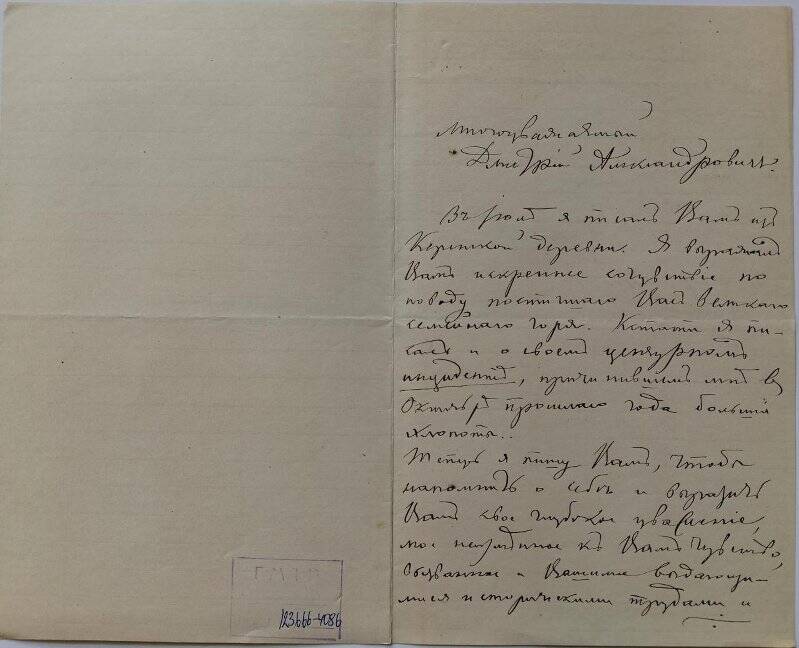 Многоуважаемый
Дмитрій Александровичъ.
Въ іюлѣ я писалъ Вамъ изъ
Керенской деревни. Я выражалъ
Вамъ искреннее сочувствіе по
поводу постигшаго Васъ великаго
семейнаго горя. Кстати я пи-
салъ и о своемъ цензурномъ
инцидентѣ, причинившимъ мнѣ въ
Октябрѣ прошлаго года большія
хлопоты..
Теперь я пишу Вамъ, чтобы
напомнить о себѣ и выразить
Вамъ свое глубокое уваженіе,
мое неизмѣнное къ Вамъ чувство,
вызванное и Вашими выдающи-
мися историческими трудами и
123666-4086